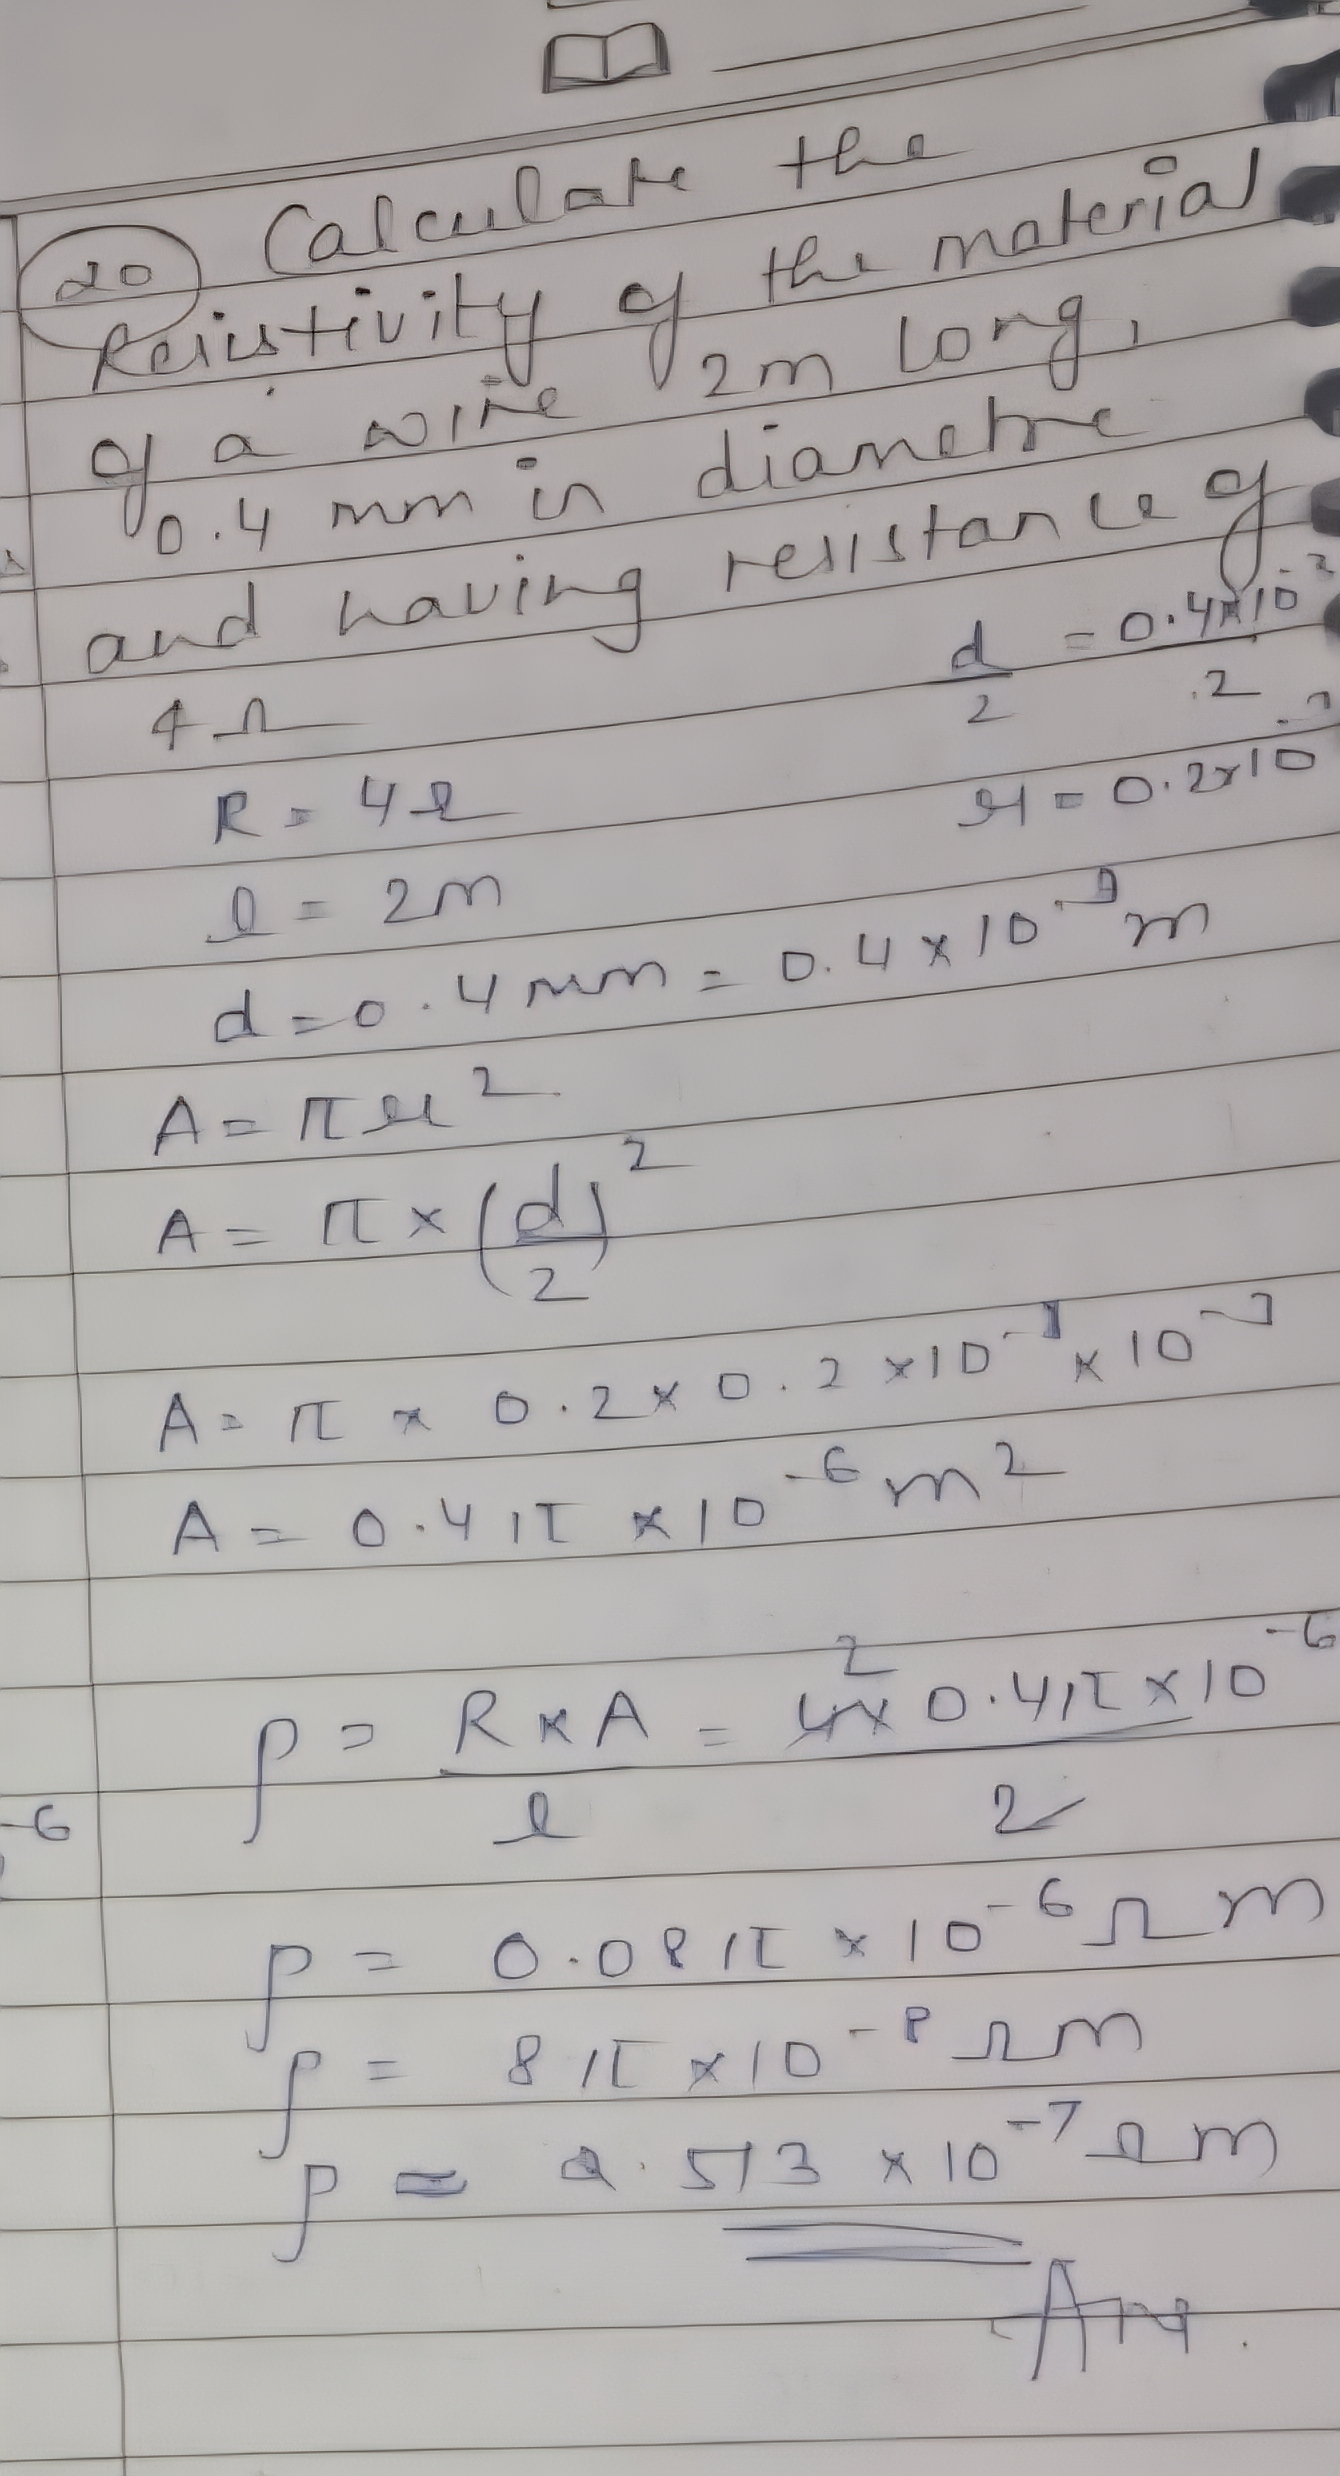 20 Calculate the
Resistivity of the material
of a wire 2m long,
0.4 mm in diametre
and having resistance of
4 Ω
d/2 = 0.4×10^-3/2
R = 4Ω
r = 0.2×10^-3
l = 2m
d = 0.4 mm = 0.4 × 10^-3 m
A = πr^2
A = π × (d/2)^2
A = π × 0.2 × 0.2 × 10^-3 × 10^-3
A = 0.4π × 10^-6 m^2
ρ = R×A/l = 4× 0.4π × 10^-6/2
2
-6
ρ = 0.08π × 10^-6 Ωm
ρ = 8π × 10^-8 Ωm
ρ = 2.513 × 10^-7 Ωm
Ans.